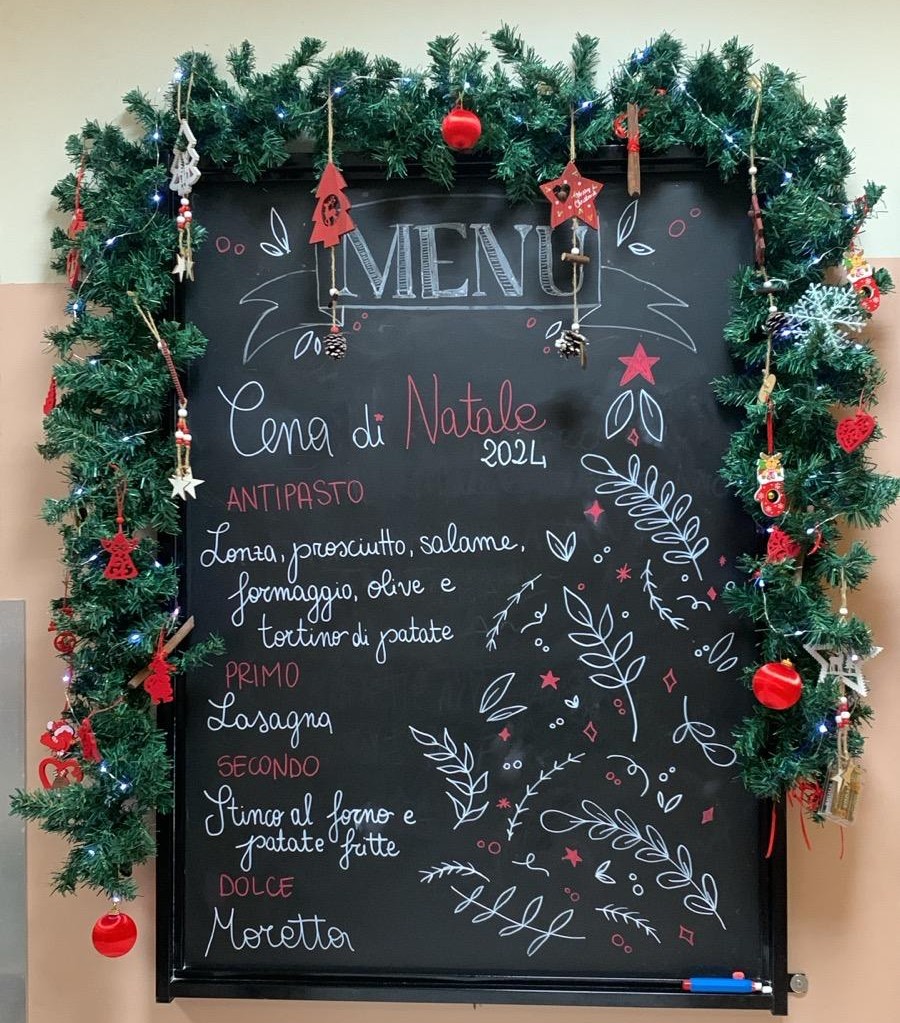 MENU
Cena di Natale
2024
ANTIPASTO
Lonza, prosciutto, salame,
formaggio, olive e
tortino di patate
PRIMO
Lasagna
SECONDO
Stinco al forno e
patate fritte
DOLCE
Moretta
Merry
Christmas